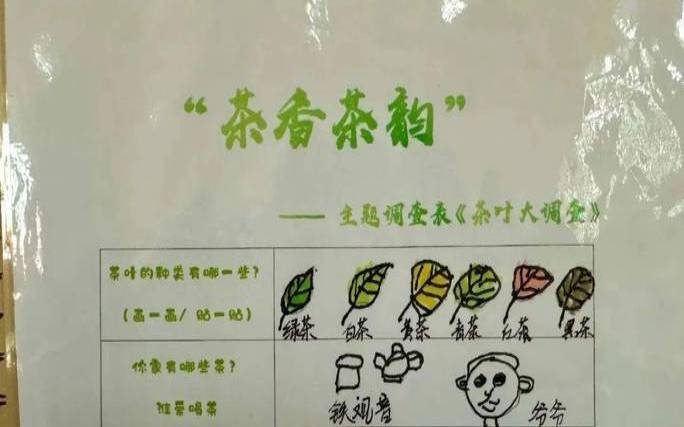 “茶香茶韵”
—— 主题调查表《茶叶大调查》
茶叶的种类有哪一些？
（画一画/ 贴一贴）
绿茶 白茶 黄茶 青茶 红茶 黑茶
你家有哪些茶？
谁爱喝茶
铁观音 爷爷